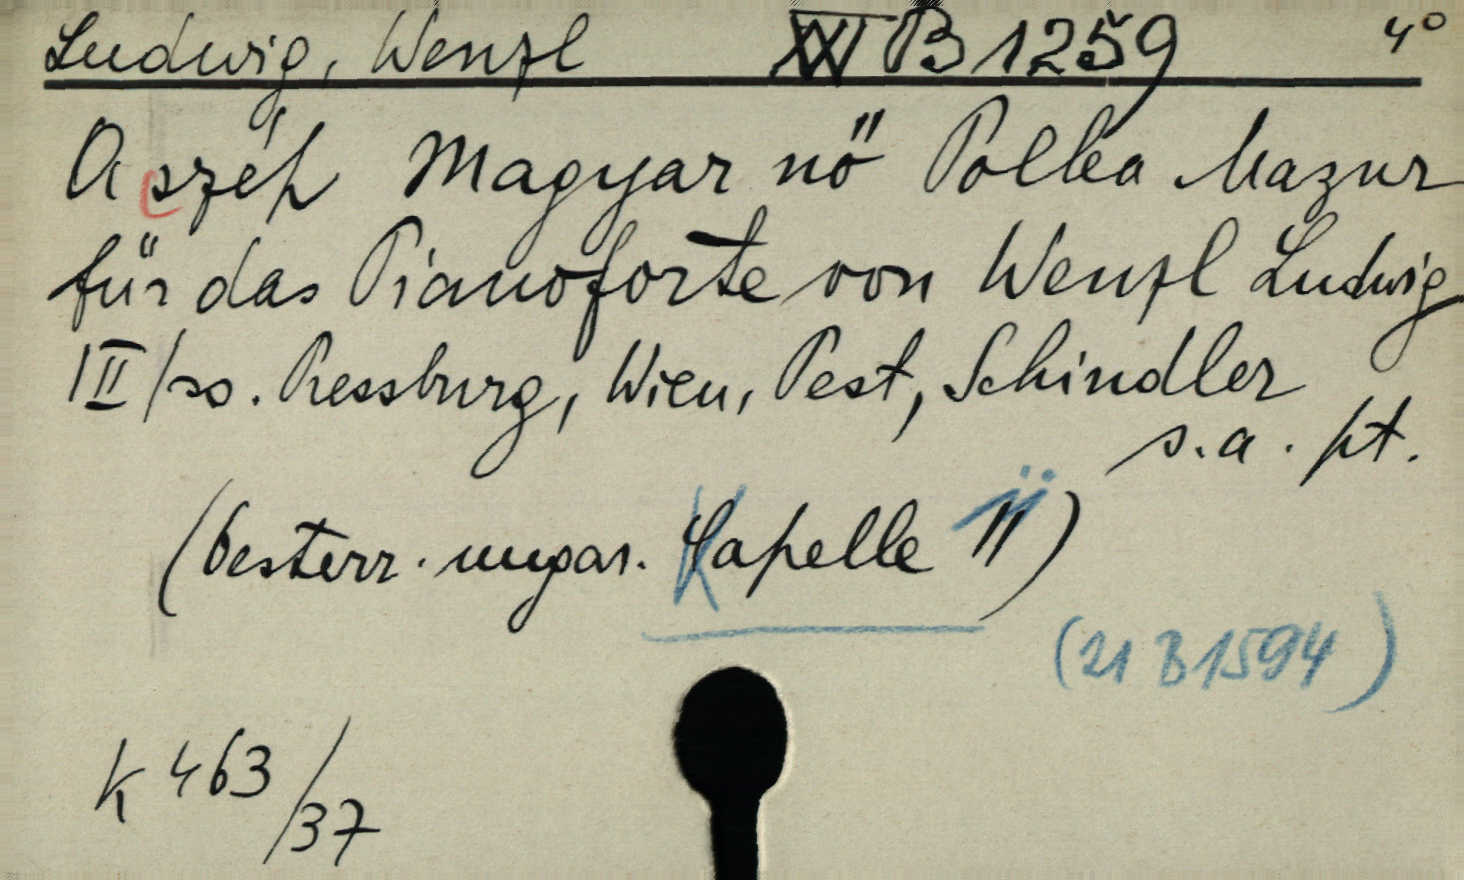 Ludwig, Wenzl XXI B 1259 4°
A széh Magyar nö Polka Mazur
für das Pianoforte von Wenzl Ludwig
|II/so. Pressburg, Wien, Pest, Schindler
s.a. pt.
(besterr. ungar. Kapelle II)
(21 B 1594)
K 463/37